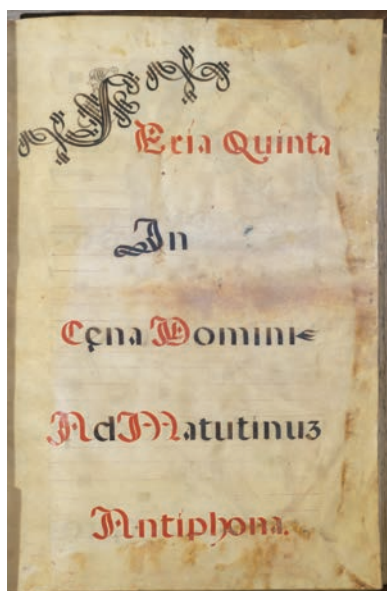 FEria Quinta
In
Cęna Domini
Ad Matutinuʒ
Antiphona.